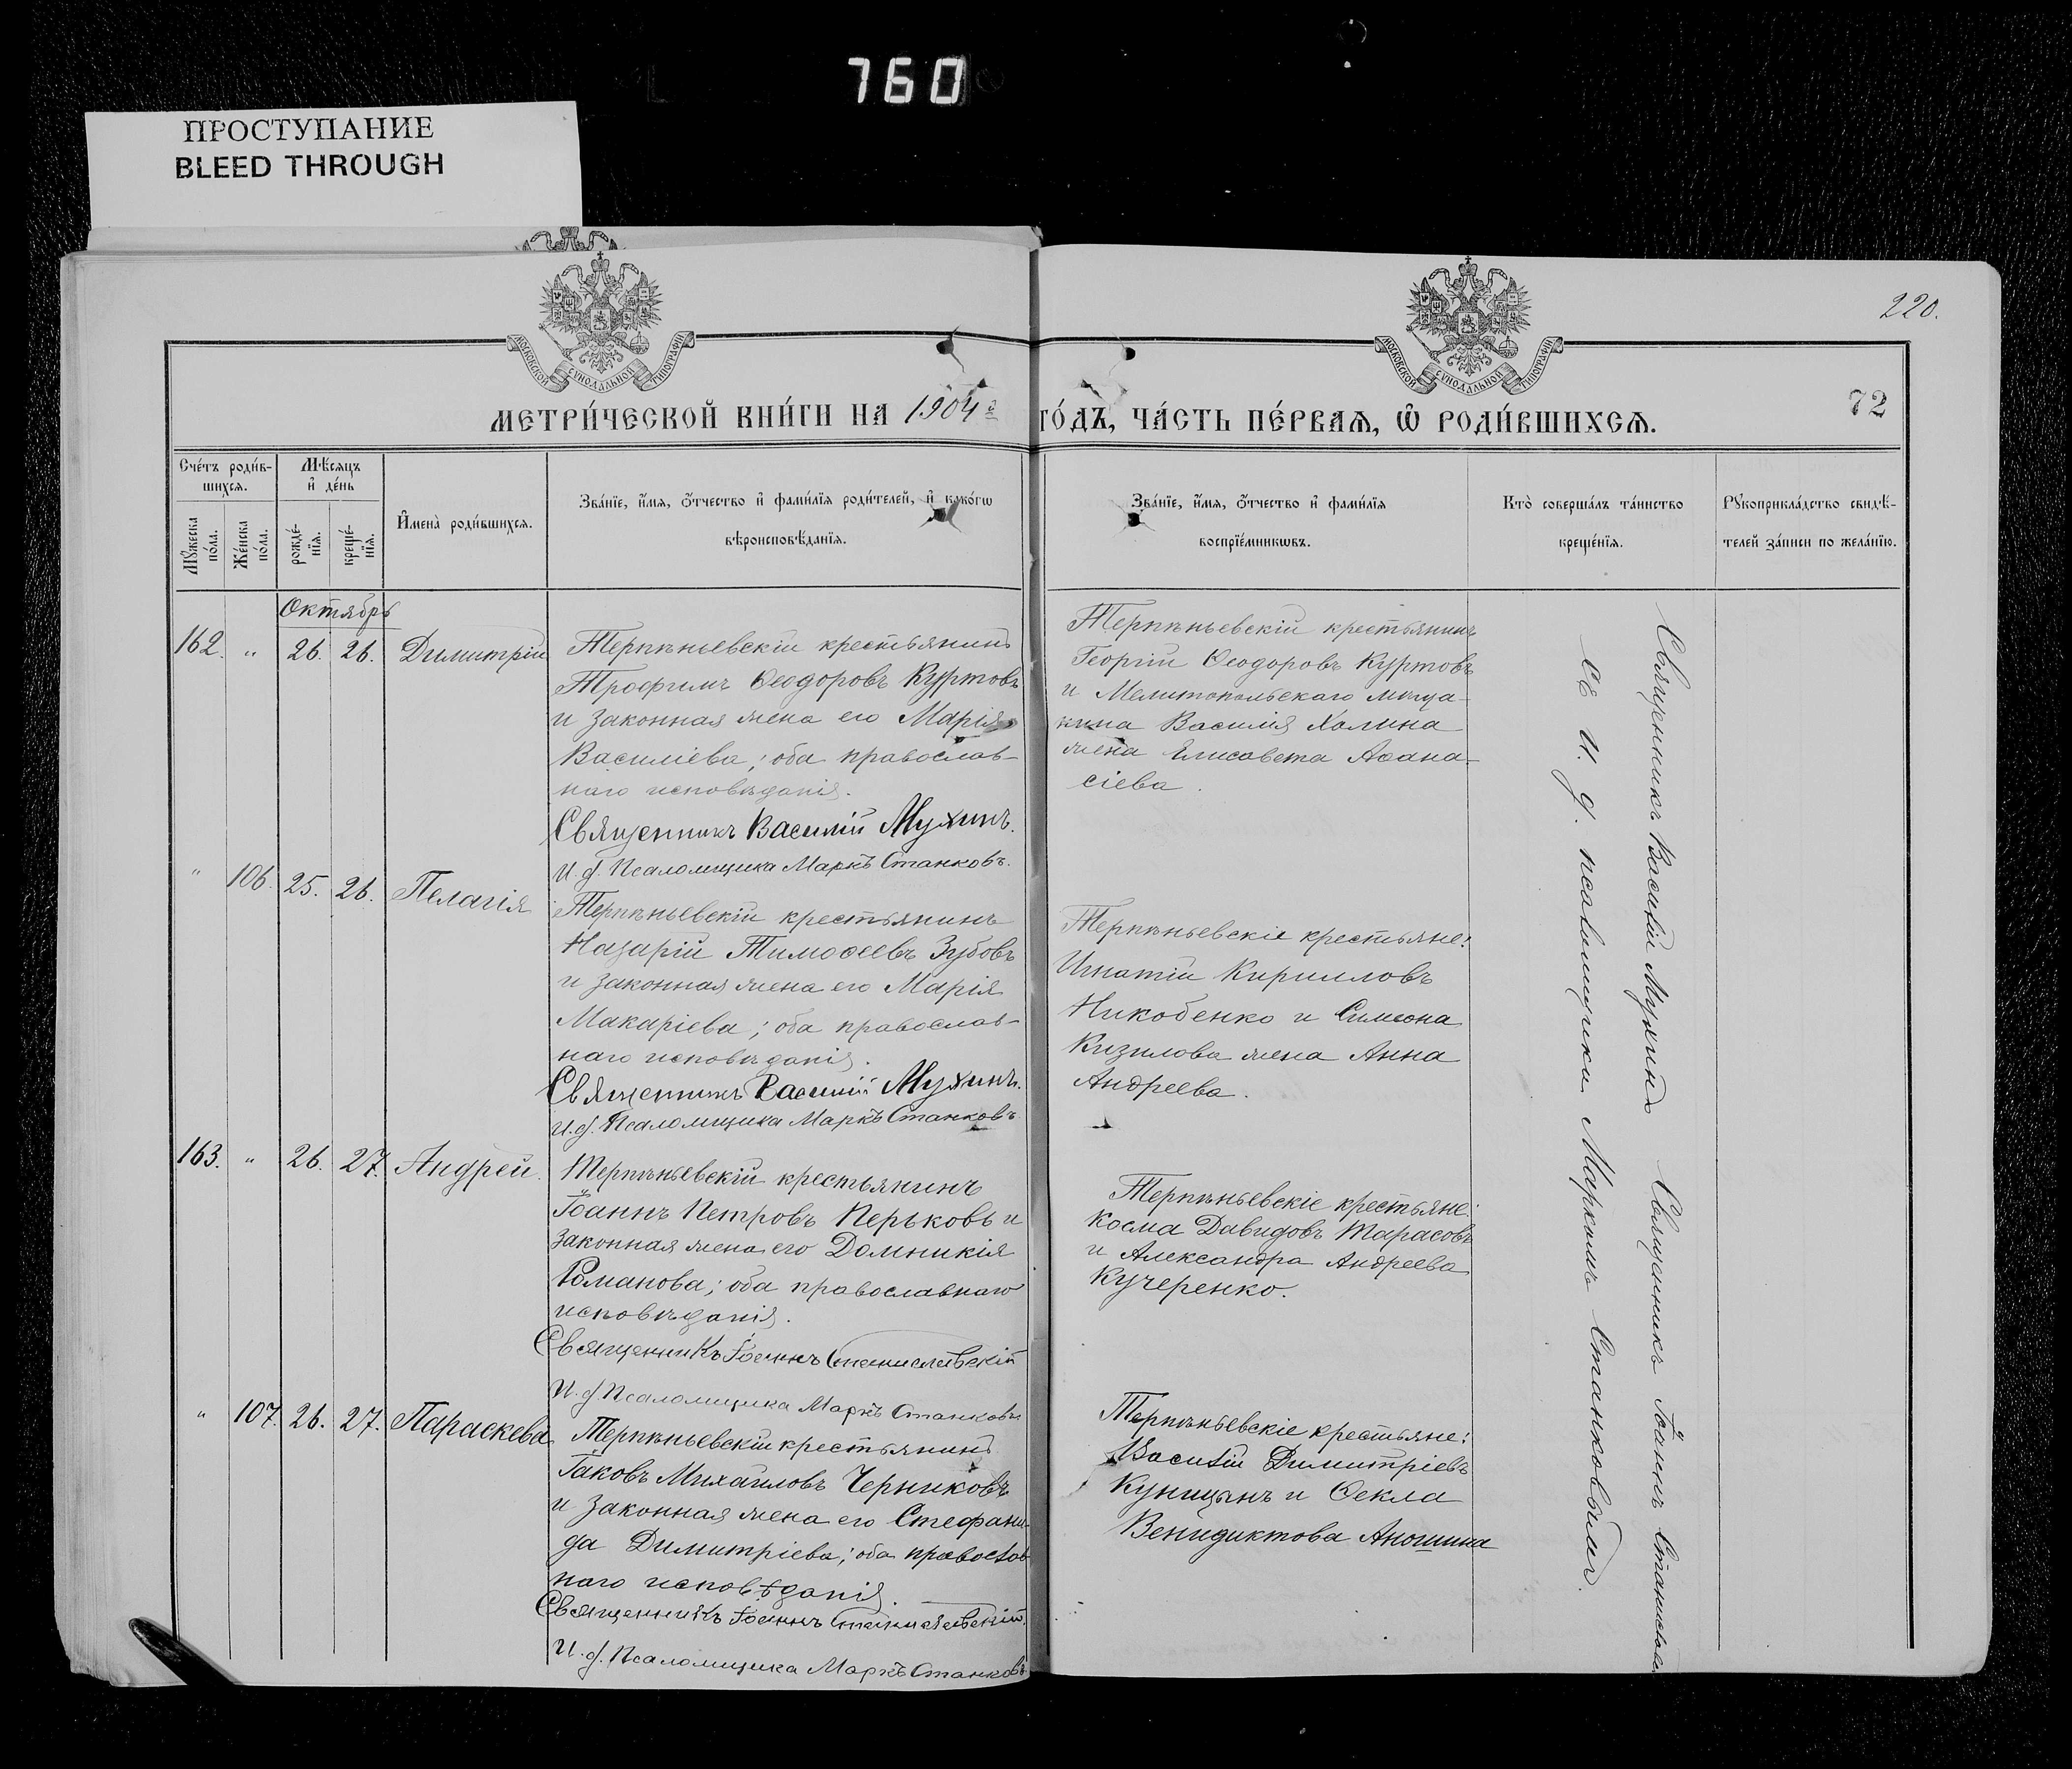 760
ПРОСТУПАНИЕ
BLEED THROUGH
МОСКОВСКОЙ СУНОДАЛЬНОЙ ТИПОГРАФІИ
МОСКОВСКОЙ СУНОДАЛЬНОЙ ТИПОГРАФІИ
220.
72
МЕТРИ́ЧЕСКОЙ КНИ́ГИ НА 1904й ГО́ДЪ, ЧА́СТЬ ПЕ́РВАѦ, Ѽ РОДИ́ВШИХСѦ.
Сче́тъ роди́в-
шихсѧ.
Мꙋжеска по́ла.
Же́нска по́ла.
Мѣ́сѧцъ
и҆ де́нь
рожде́-
нїѧ.
креще́-
нїѧ.
И҆мена̀ роди́вшихсѧ.
Зва́нїе, и҆́мѧ, ѻ҆́тчество и҆ фами́лїѧ роди́телей, и҆ како́гѡ
вѣроисповѣ́данїѧ.
Зва́нїе, и҆́мѧ, ѻ҆́тчество и҆ фами́лїѧ
воспрїе́мникѡвъ.
Кто̀ соверша́лъ та́инство
креще́нїѧ.
Рꙋкоприкла́дство свидѣ́-
телей за́писи по жела́нїю.
Октябрь
162. " 26. 26. Димитрій
Терпѣньевскій крестьянинъ
Трофимъ Ѳеодоровъ Куртовъ
и законная жена его Марія
Василіева; оба православ-
наго исповѣданія.
Священникъ Василій Мухинъ.
И. д. Псаломщика Маркъ Станковъ.
Терпѣньевскій крестьянинъ
Георгій Ѳеодоровъ Куртовъ
и Мелитопольскаго мѣща-
нина Василія Халина
жена Елисавета Аѳана-
сіева.
" 106. 25. 26. Пелагія
Терпѣньевскій крестьянинъ
Назарій Тимоѳеевъ Зубовъ
и законная жена его Марія
Макаріева; оба православ-
наго исповѣданія.
Священникъ Василій Мухинъ.
И. д. Псаломщика Маркъ Станковъ
Терпѣньевскіе крестьяне:
Игнатій Кирилловъ
Никобенко и Симеона
Кизилова жена Анна
Андреева.
163. " 26. 27. Андрей.
Терпѣньевскій крестьянинъ
Іоаннъ Петровъ Перьковъ и
законная жена его Домникія
Романова; оба православнаго
исповѣданія.
Священникъ Іоаннъ Станиславскій
И. д. Псаломщика Маркъ Станковъ
Терпѣньевскіе крестьяне:
Косма Давидовъ Тарасовъ
и Александра Андреева
Кучеренко.
" 107. 26. 27. Параскева
Терпѣньевскій крестьянинъ
Іаковъ Михаиловъ Черниковъ
и законная жена его Стефани-
да Димитріева; оба православ
наго исповѣданія.
Священникъ Іоаннъ Станиславскій.
И. д. Псаломщика Маркъ Станковъ
Терпѣньевскіе крестьяне:
Василій Димитріевъ
Куницынъ и Ѳекла
Венидиктова Аношина
Священникъ Василій Мухинъ Священникъ Іоаннъ
съ и. д. псаломщика Маркомъ Станковымъ.